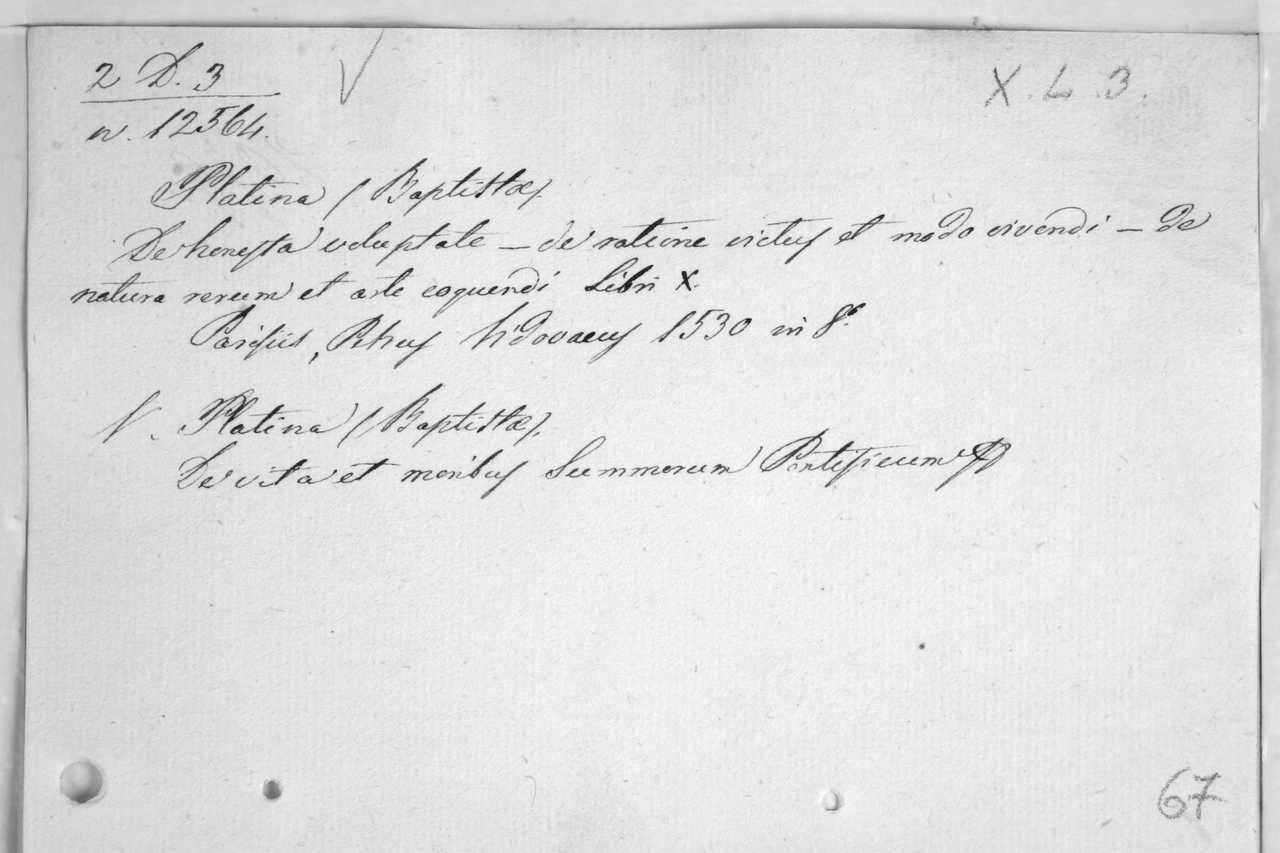 2 D. 3
n. 12564.
X. L. 3.
Platina (Baptistæ)
De honesta voluptate – de ratione victus et modo vivendi – de
natura rerum et arte coquendi Libri X.
Parisiis, Petrus Vidovaeus 1530 in 8°
V. Platina (Baptistæ).
De vita et moribus Summorum Pontificum
67